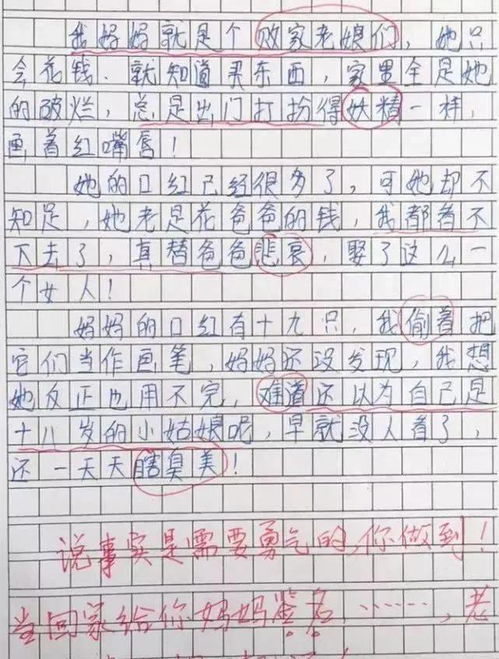 我妈妈就是个败家老娘们，她只
会花钱．就知道买东西，家里全是她
的破烂，总是出门打扮得妖精一样，
画着红嘴唇！
她的口红已经很多了，可她却不
知足，她老是花爸爸的钱，我都看不
下去了，真替爸爸悲哀，娶了这么一
个女人！
妈妈的口红有十九只，我偷着把
它们当作画笔，妈妈还没发现，我想
她反正也用不完，难道还以为自己是
十八岁的小姑娘呢，早就没人看了，
还一天天瞎臭美！
说事实是需要勇气的，你做到！
当回家给你妈妈鉴名……，老